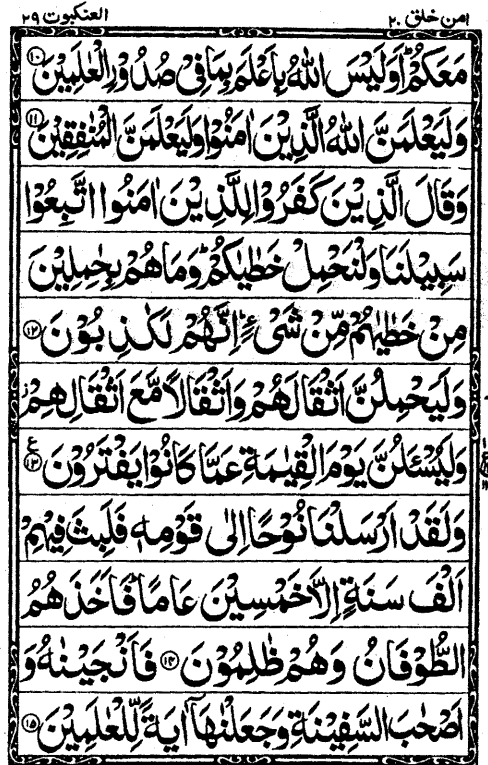 امن خلق ٢٠ العنكبوت ٢٩
مَعَكُمْ ؕ اَوَلَيْسَ اللّٰهُ بِاَعْلَمَ بِمَا فِىْ صُدُوْرِ الْعٰلَمِيْنَ ﴿١٠﴾
وَلَيَعْلَمَنَّ اللّٰهُ الَّذِيْنَ اٰمَنُوْا وَلَيَعْلَمَنَّ الْمُنٰفِقِيْنَ ﴿١١﴾
وَقَالَ الَّذِيْنَ كَفَرُوْا لِلَّذِيْنَ اٰمَنُوا اتَّبِعُوْا
سَبِيْلَنَا وَلْنَحْمِلْ خَطٰيٰكُمْ ؕ وَمَا هُمْ بِحٰمِلِيْنَ
مِنْ خَطٰيٰهُمْ مِّنْ شَىْءٍ ؕ اِنَّهُمْ لَكٰذِبُوْنَ ﴿١٢﴾
وَلَيَحْمِلُنَّ اَثْقَالَهُمْ وَاَثْقَالًا مَّعَ اَثْقَالِهِمْ ز
وَلَيُسْـَٔلُنَّ يَوْمَ الْقِيٰمَةِ عَمَّا كَانُوْا يَفْتَرُوْنَ ﴿١٣﴾ ع
وَلَقَدْ اَرْسَلْنَا نُوْحًا اِلٰى قَوْمِهٖ فَلَبِثَ فِيْهِمْ
اَلْفَ سَنَةٍ اِلَّا خَمْسِيْنَ عَامًا ؕ فَاَخَذَهُمُ
الطُّوْفَانُ وَهُمْ ظٰلِمُوْنَ ﴿١٤﴾ فَاَنْجَيْنٰهُ وَ
اَصْحٰبَ السَّفِيْنَةِ وَجَعَلْنٰهَاۤ اٰيَةً لِّلْعٰلَمِيْنَ ﴿١٥﴾